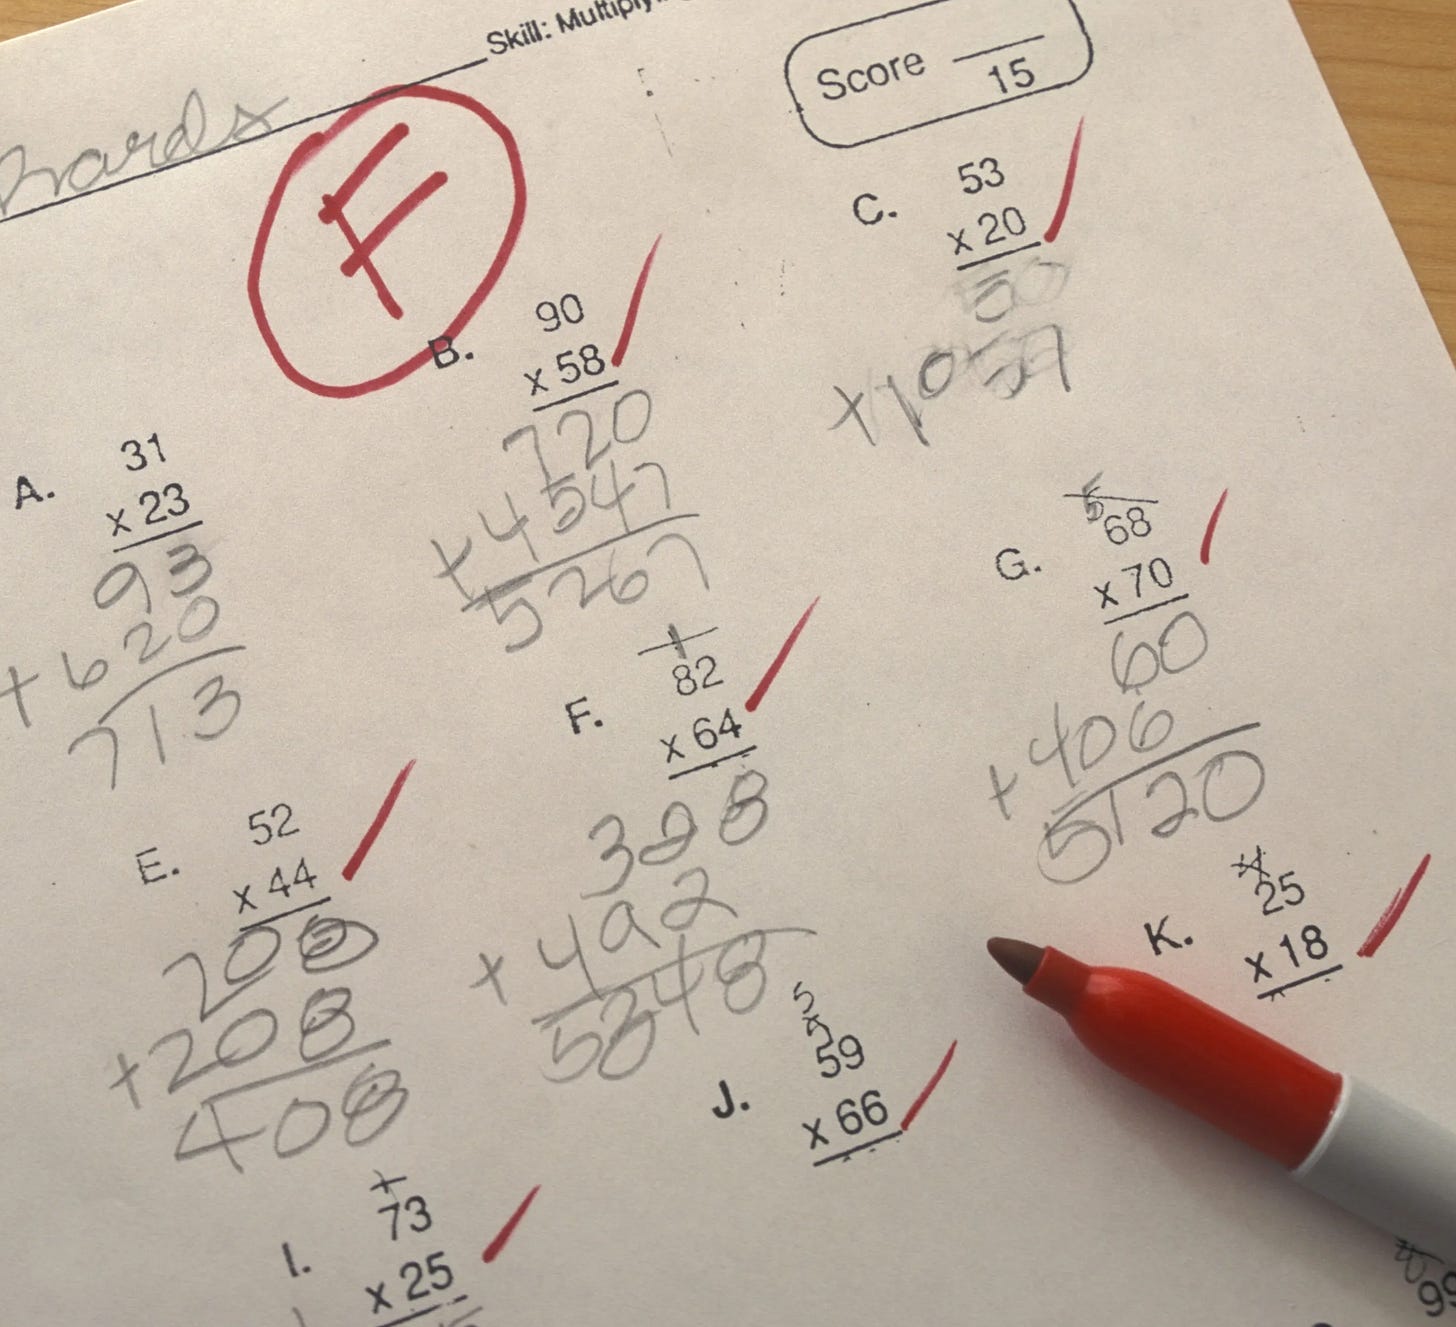 Skill: Multiply
Score
15
F
A.
31
x 23
93
+ 620
713
B.
90
x 58
720
+ 4547
5267
C.
53
x 20
50
E.
52
x 44
+ 208
408
F.
1
82
x 64
328
+ 492
5248
G.
5
68
x 70
60
+ 406
5120
I.
73
x 25
J.
5
59
x 66
K.
4
25
x 18